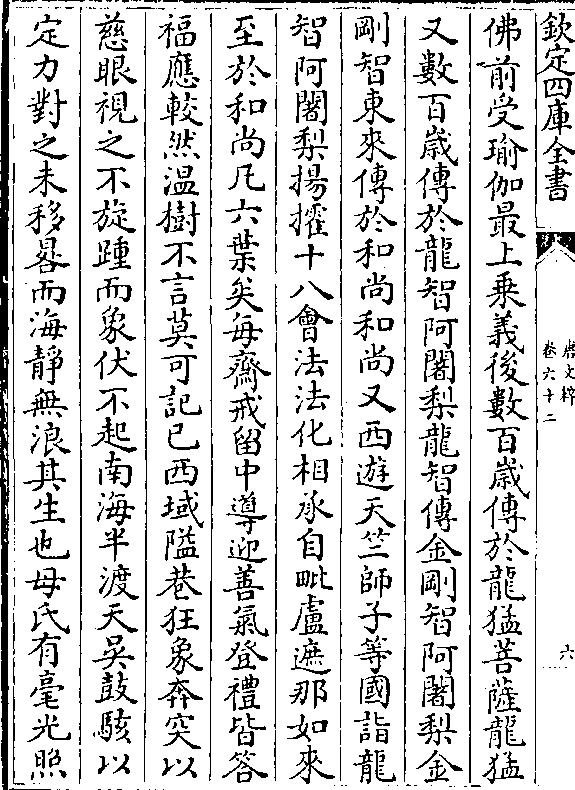 欽定四庫全書
唐文粹
卷六十二
六
佛前受瑜伽最上乗義後數百歲傳於龍猛菩薩龍猛
又數百歲傳於龍智阿闍梨龍智傳金剛智阿闍梨金
剛智東來傳於和尚和尚又西遊天竺師子等國詣龍
智阿闍梨揚攉十八會法法化相承自毗盧遮那如來
至於和尚凡六葉矣每齋戒留中導迎善氣登禮皆答
福應較然温樹不言莫可記已西域隘巷狂象奔突以
慈眼視之不旋踵而象伏不起南海半渡天吳鼓駭以
定力對之未移晷而海靜無浪其生也母氏有毫光照